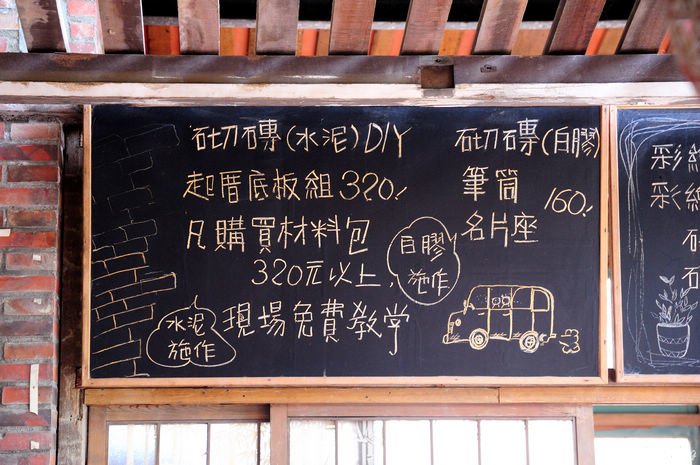 砌磚(水泥)DIY
起厝底板組 320.
凡購買材料包
320元以上,
現場免費教學
水泥
施作
砌磚(白膠)
筆筒
名片座
160.
白膠
施作
彩繪
彩繪